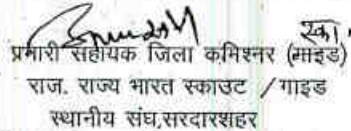 स्का.
प्रभारी सहायक जिला कमिश्नर (गाइड)
राज. राज्य भारत स्काउट / गाइड
स्थानीय संघ,सरदारशहर